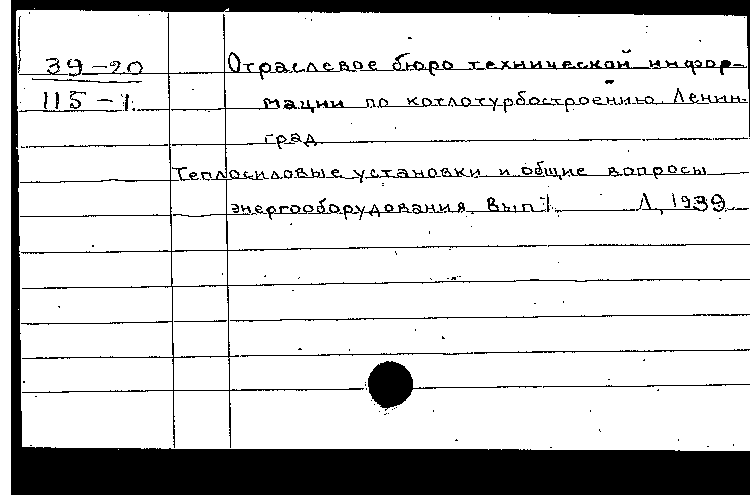 39-20
115-1.
Отраслевое бюро технической инфор-
мации по котлотурбостроению. Ленин-
град.
Теплосиловые установки и общие вопросы
энергооборудования. Вып. 1. Л, 1939